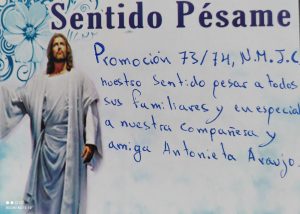 Sentido Pésame
Promoción 73/74, N.M.J.C
nuestro sentido pesar a todos
sus familiares y en especial
a nuestra compañera y
amiga Antonieta Araujo